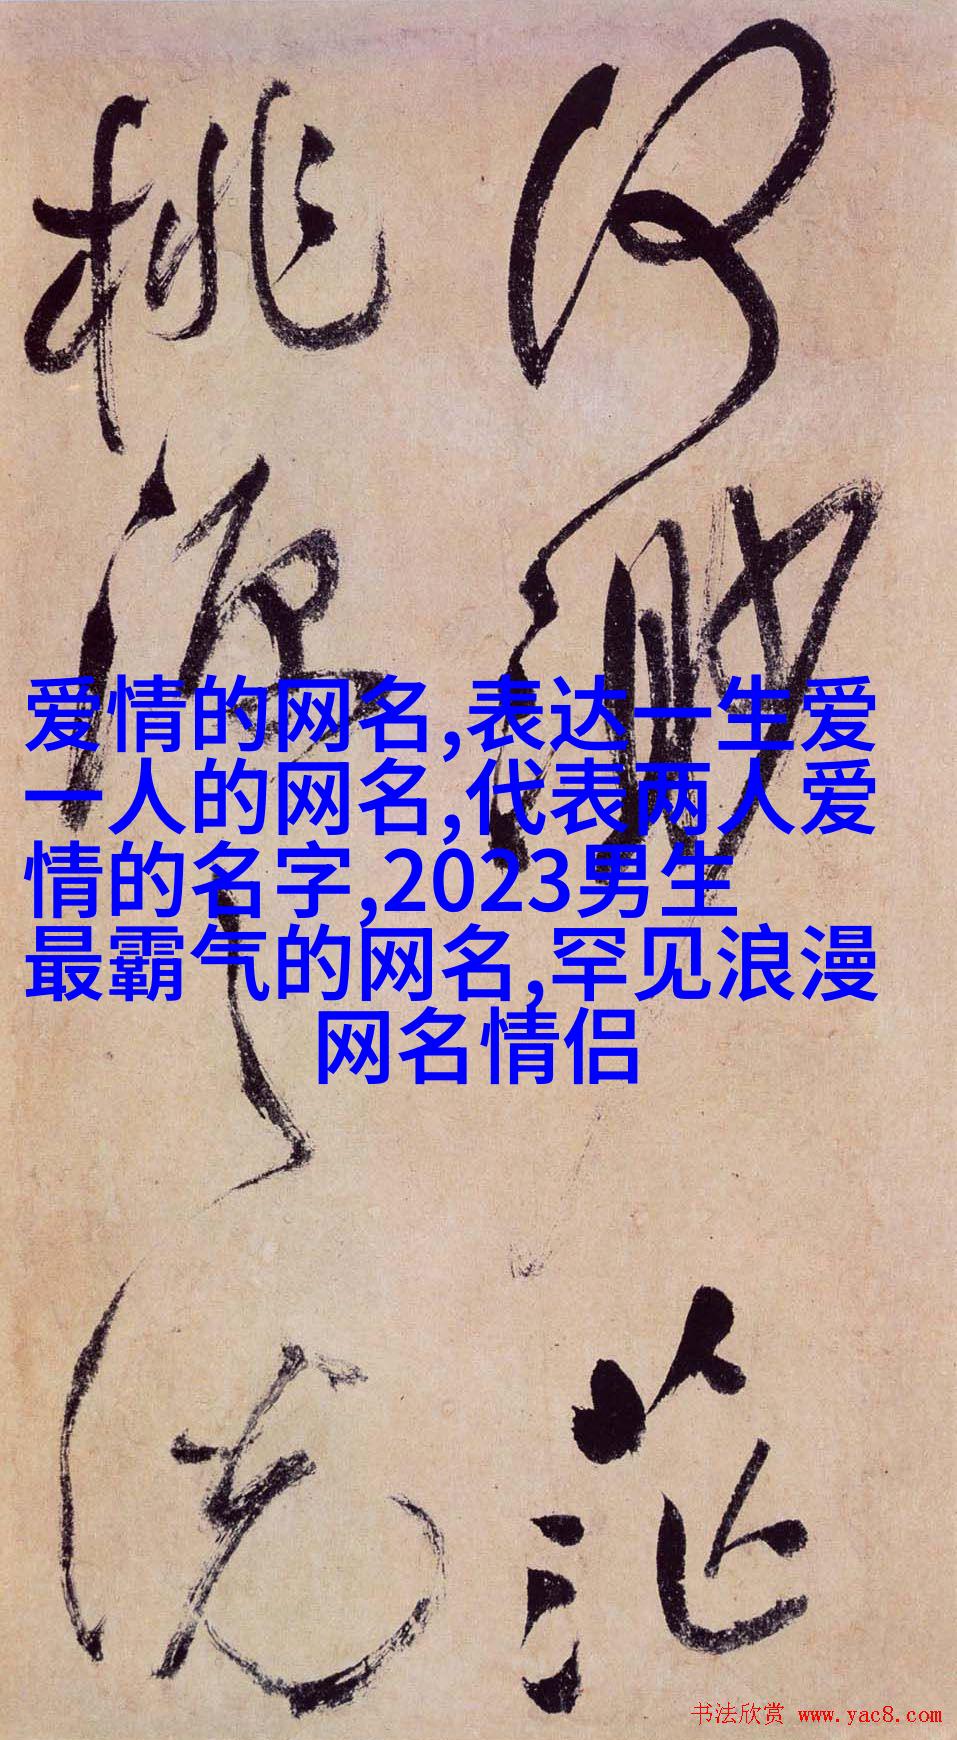 何渺茫
桃源之說
爱情的网名,表达一生爱
一人的网名,代表两人爱
情的名字,2023男生
最霸气的网名,罕见浪漫
网名情侣
书法欣赏 www.yac8.com